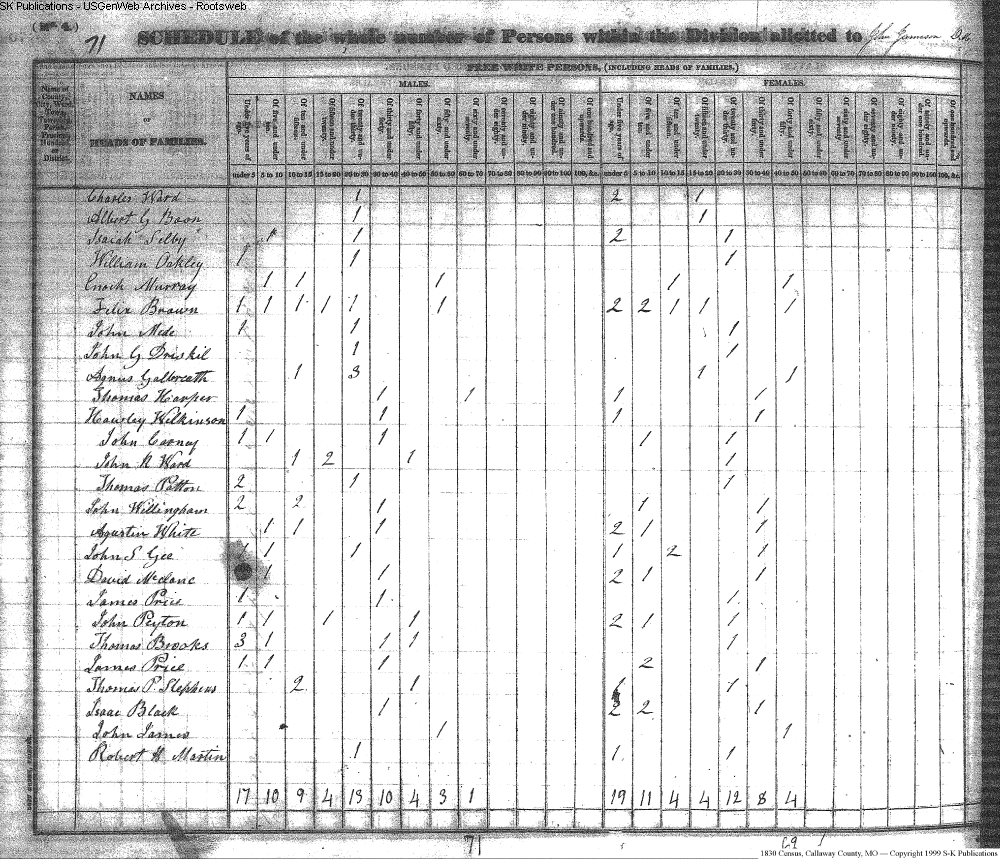 SK Publications - USGenWeb Archives - Rootsweb
(No. 4.)
71 SCHEDULE of the whole number of Persons within the Division allotted to John Jameson
FREE WHITE PERSONS, (INCLUDING HEADS OF FAMILIES.)
NAMES OF HEADS OF FAMILIES.
MALES. FEMALES.
under 5 5 to 10 10 to 15 15 to 20 20 to 30 30 to 40 40 to 50 50 to 60 60 to 70 70 to 80 80 to 90 90 to 100 100, &c. under 5 5 to 10 10 to 15 15 to 20 20 to 30 30 to 40 40 to 50 50 to 60 60 to 70 70 to 80 80 to 90 90 to 100 100, &c.
Charles Ward 1 2 1
Albert G Boon 1 1
Isaiah Selby 1 1 2 1
William Oakley 1 1 1
Enoch Murray 1 1 1 1 1
Felix Brown 1 1 1 1 1 1 2 2 1 1 1
John Mede 1 1 1
John G Driskil 1 1
Agnus Galbreath 1 3 1 1
Thomas Harper 1 1 1 1
Hawley Wilkinson 1 1 1 1
John Carney 1 1 1 1 1
John R Ward 1 2 1 1
Thomas Patton 2 1 1
John Willingham 2 2 1 1 1
Agustin White 1 1 1 2 1 1
John S Gee 1 1 1 1 2 1
David McClanc 1 1 2 1 1
James Price 1 1 1
John Peyton 1 1 1 1 2 1 1
Thomas Brooks 3 1 1 1 1
James Price 1 1 1 2 1
Thomas P. Stephens 2 1 1 1
Isaac Black 1 2 2 1
John James 1 1
Robert H Martin 1 1 1
17 10 9 4 13 10 4 3 1 19 11 4 4 12 8 4
71 69
1830 Census, Callaway County, MO — Copyright 1999 S-K Publications